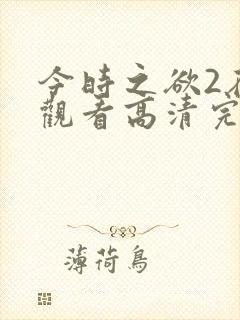 今時之欲2
觀看高清完
薄荷鳥